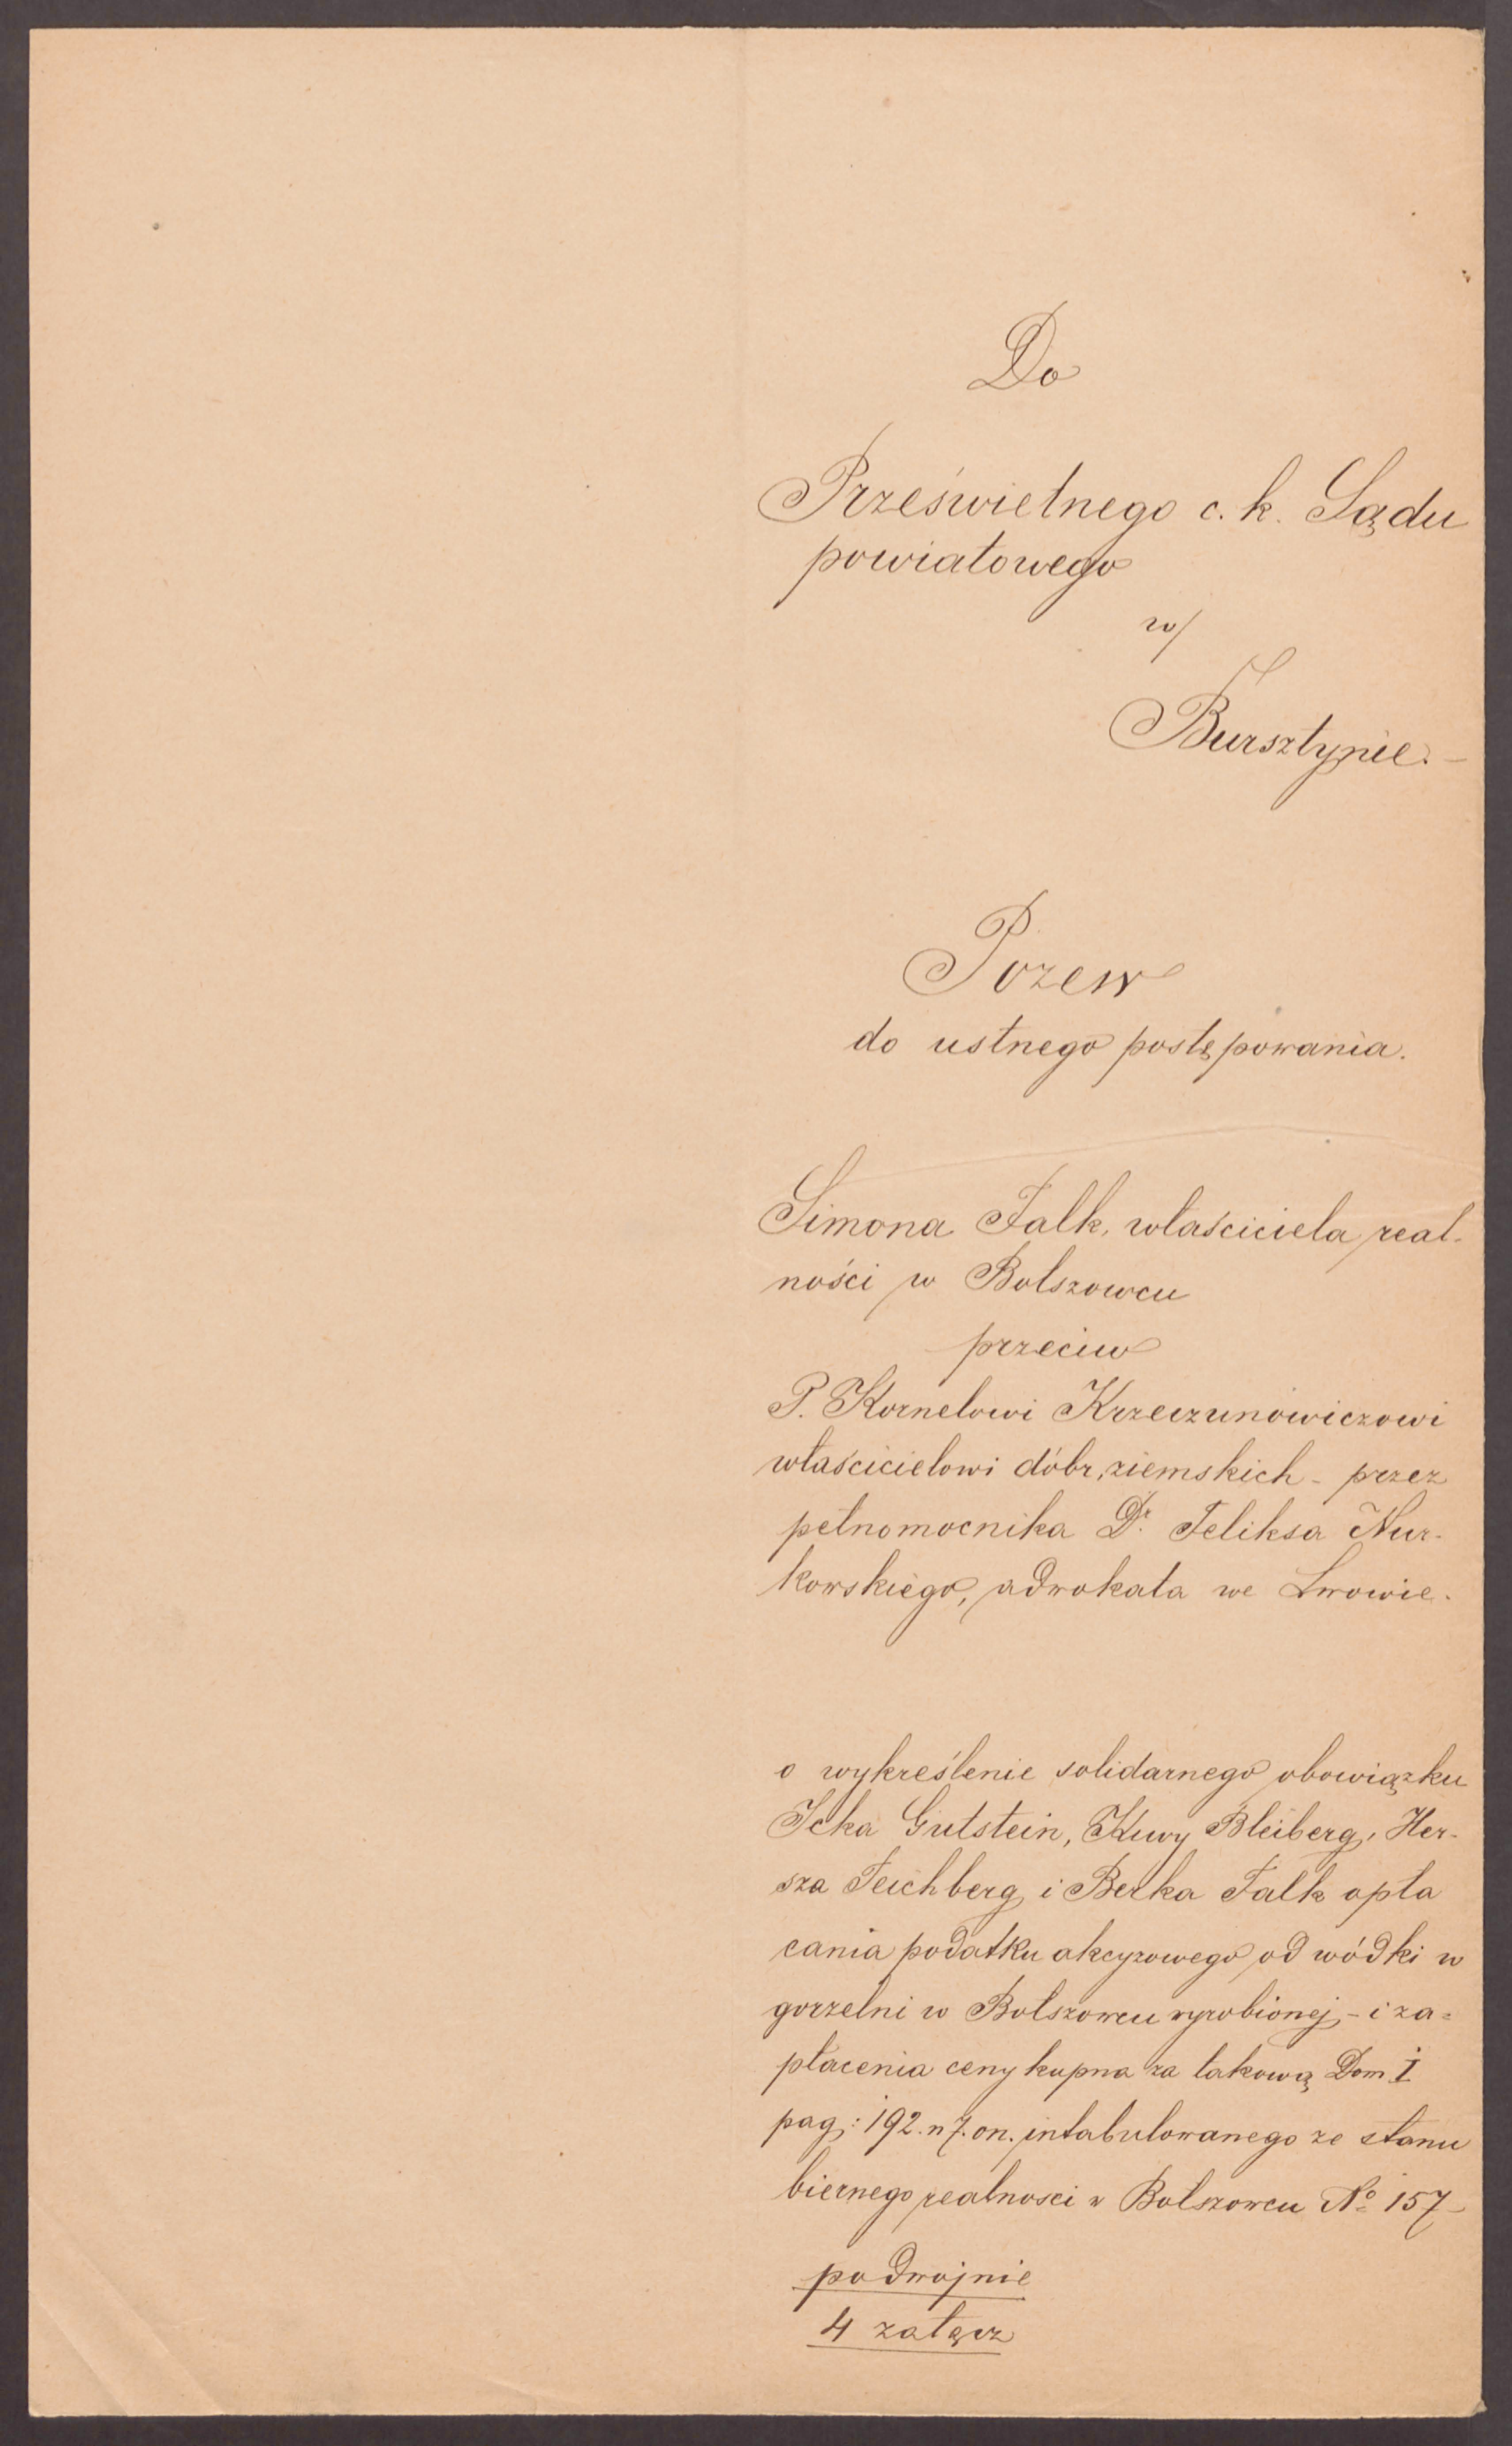 Do
Prześwietnego c. k. Sądu
powiatowego
w/
Bursztynie. –
Pozew
do ustnego postępowania.
Simona Falk, właściciela real-
ności w Bolszowcu
przeciw
P. Kornelowi Krzeczunowiczowi
właścicielowi dóbr ziemskich – przez
pełnomocnika Dr. Feliksa Nur-
kowskiego, adwokata we Lwowie.
o wykreślenie solidarnego obowiązku
Icka Gutstein, Kuwy Bleiberg, Her-
sza Teichberg i Berka Falk opła
cania podatku akcyzowego od wódki w
gorzelni w Bolszowcu wyrobionej – i za=
płacenia ceny kupna za takową Dom I
pag: 192. n 7. on. intabulowanego ze stanu
biernego realnosci w Bolszowcu No 157 –
podwojnie
4 załącz